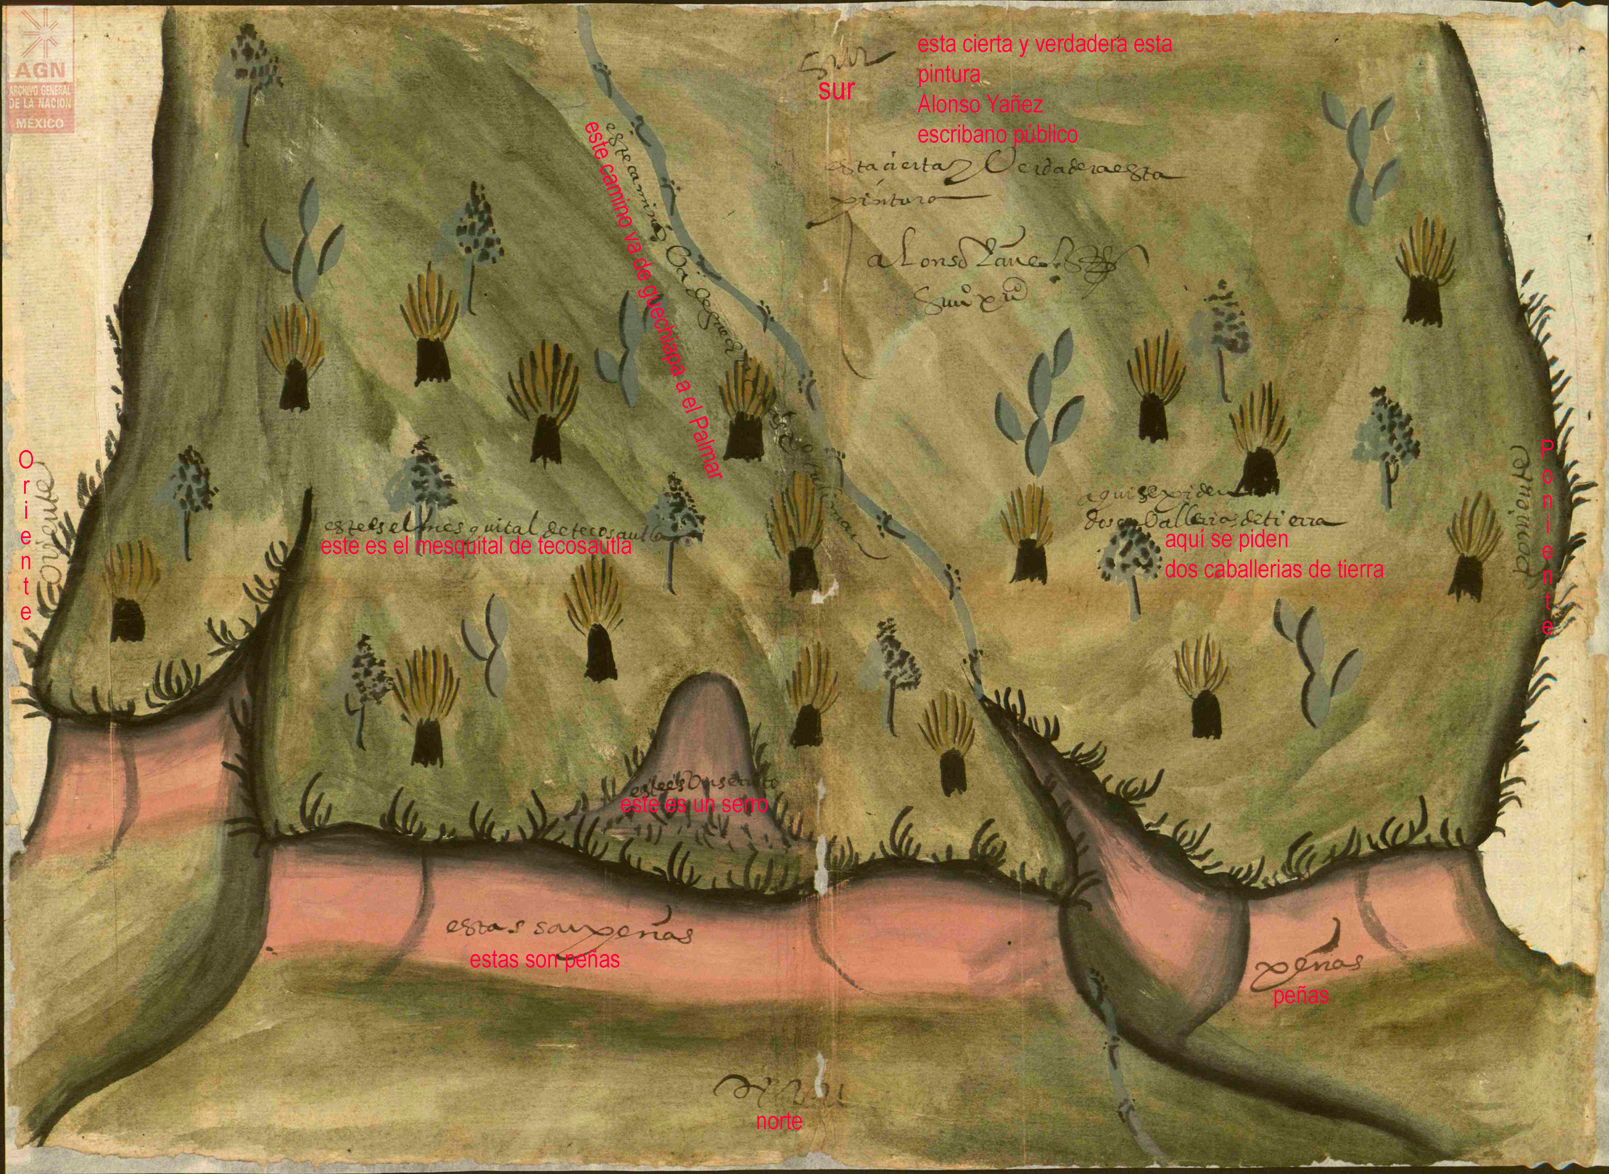 AGN
ARCHIVO GENERAL
DE LA NACION
MÉXICO
sur
sur
esta cierta y verdadera esta
pintura
Alonso Yañez
escribano público
esta cierta y Verdadera esta
pintura
alonso Yañez
este camino va de guechiapa a el Palmar
este camino Va de
Oriente
oriente
Poniente
poniente
este es el mesquital de tecosautla
este es el mesquital de tecosautla
aqui se piden
dos caballerias de tierra
aquí se piden
dos caballerias de tierra
este es un serro
este es un serro
estas son peñas
estas son peñas
peñas
peñas
norte
norte